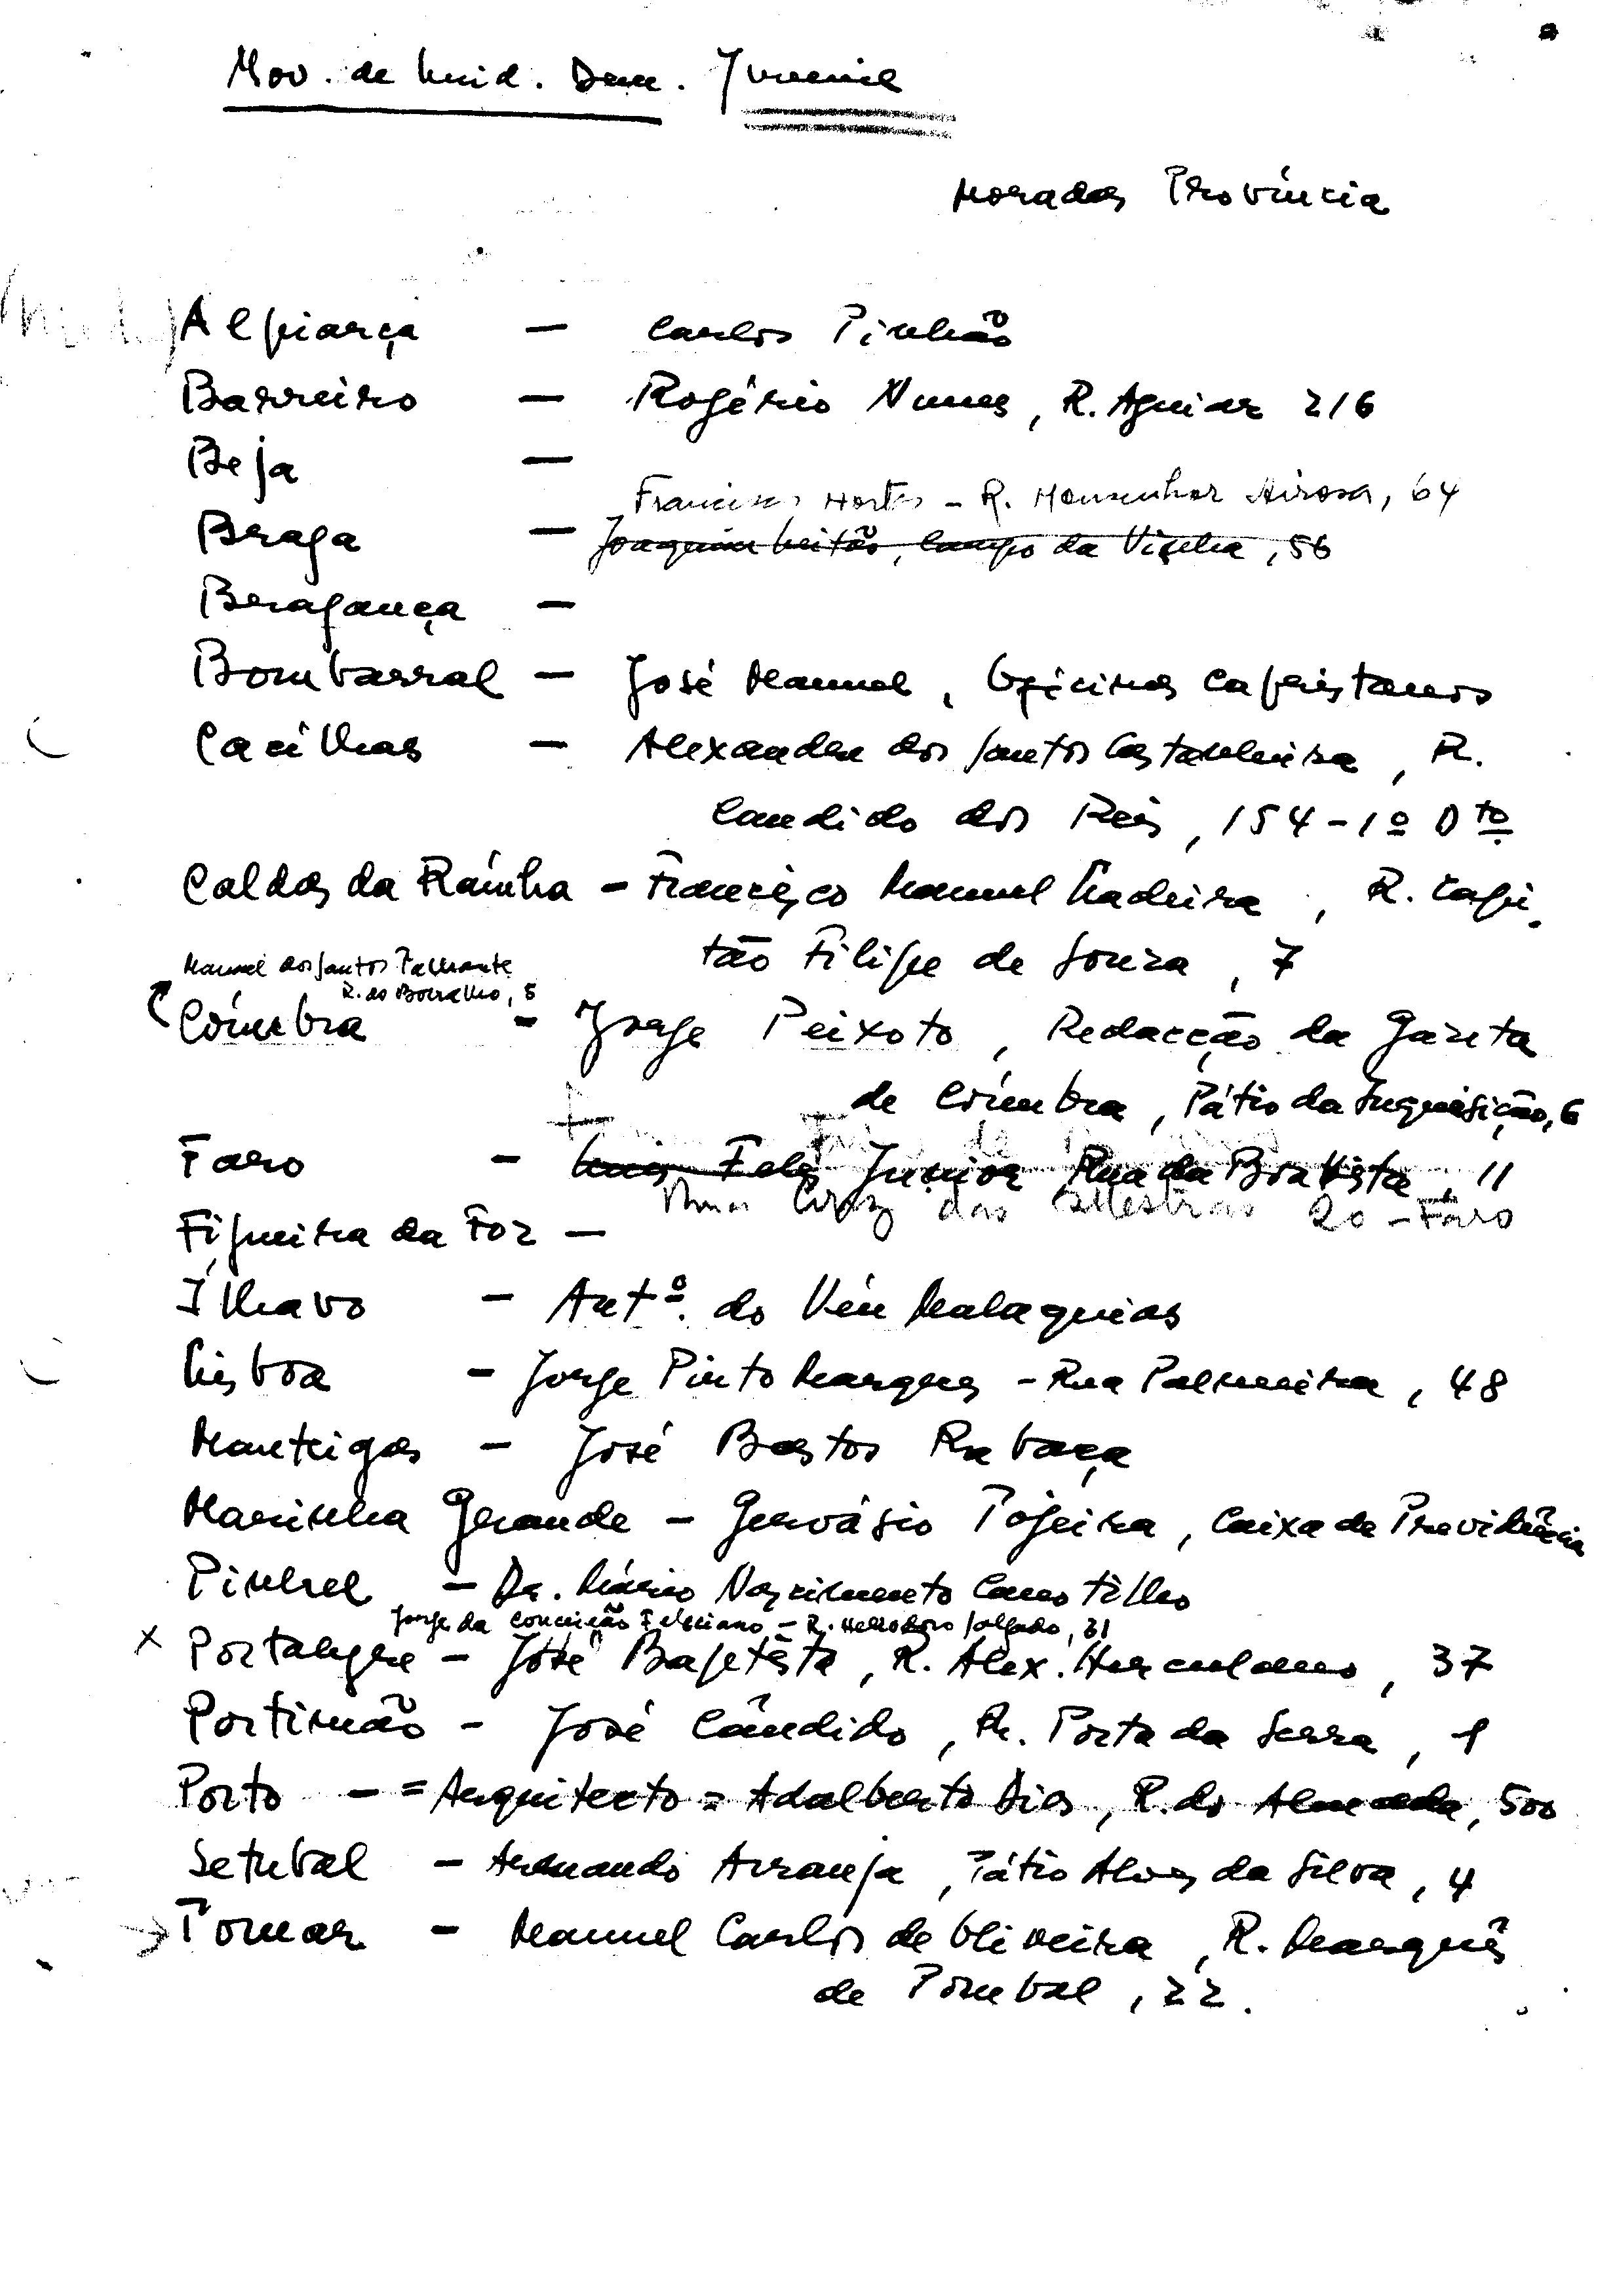 Mov. de Unid. Dem. Juvenil
Moradas Província
Alpiarça — Carlos Pinhão
Barreiro — Rogério Nunes, R. Aguiar 216
Beja —
Francisco Horta - R. Monsenhor Airosa, 64
Braga — Joaquim Leitão, Campo da Vinha, 56
Bragança —
Bombarral — José Manuel, Oficinas Capristanos
Cacilhas — Alexandre dos Santos Castanheira, R.
Candido dos Reis, 154-1º Dto
Caldas da Raínha - Francisco Manuel Madeira, R. Capi-
tão Filipe de Sousa, 7
Manuel dos Santos
R. do Borralho, 5
Coímbra - Jorge Peixoto, Redacção da Gazeta
de Coímbra, Pátio da Inquisição, 6
Faro - Júnior Rua da Boa Vista, 11
Rua Cruz das Mestras 20 - Faro
Figueira da Foz —
Ílhavo - Antº. do Véu Malaquias
Lisboa - Jorge Pinto Marques - Rua Palmeira, 48
Manteigas - José Bastos Rabaça
Marinha Grande - Gervásio Pojeira, Caixa de Previdência
Pinhel - Dr. Mário Nascimento Canotilho
Jorge da Conceição Feliciano - R. Heliodoro Salgado, 31
x Portalegre - José Baptista, R. Alex. Herculano, 37
Portimão - José Cândido, R. Porta da Serra, 1
Porto - = Arquitecto = Adalberto Dias, R. do Almada, 500
Setubal - Armando Arranja, Pátio Alves da Silva, 4
Tomar - Manuel Carlos de Oliveira, R. Marquês
de Pombal, 22.